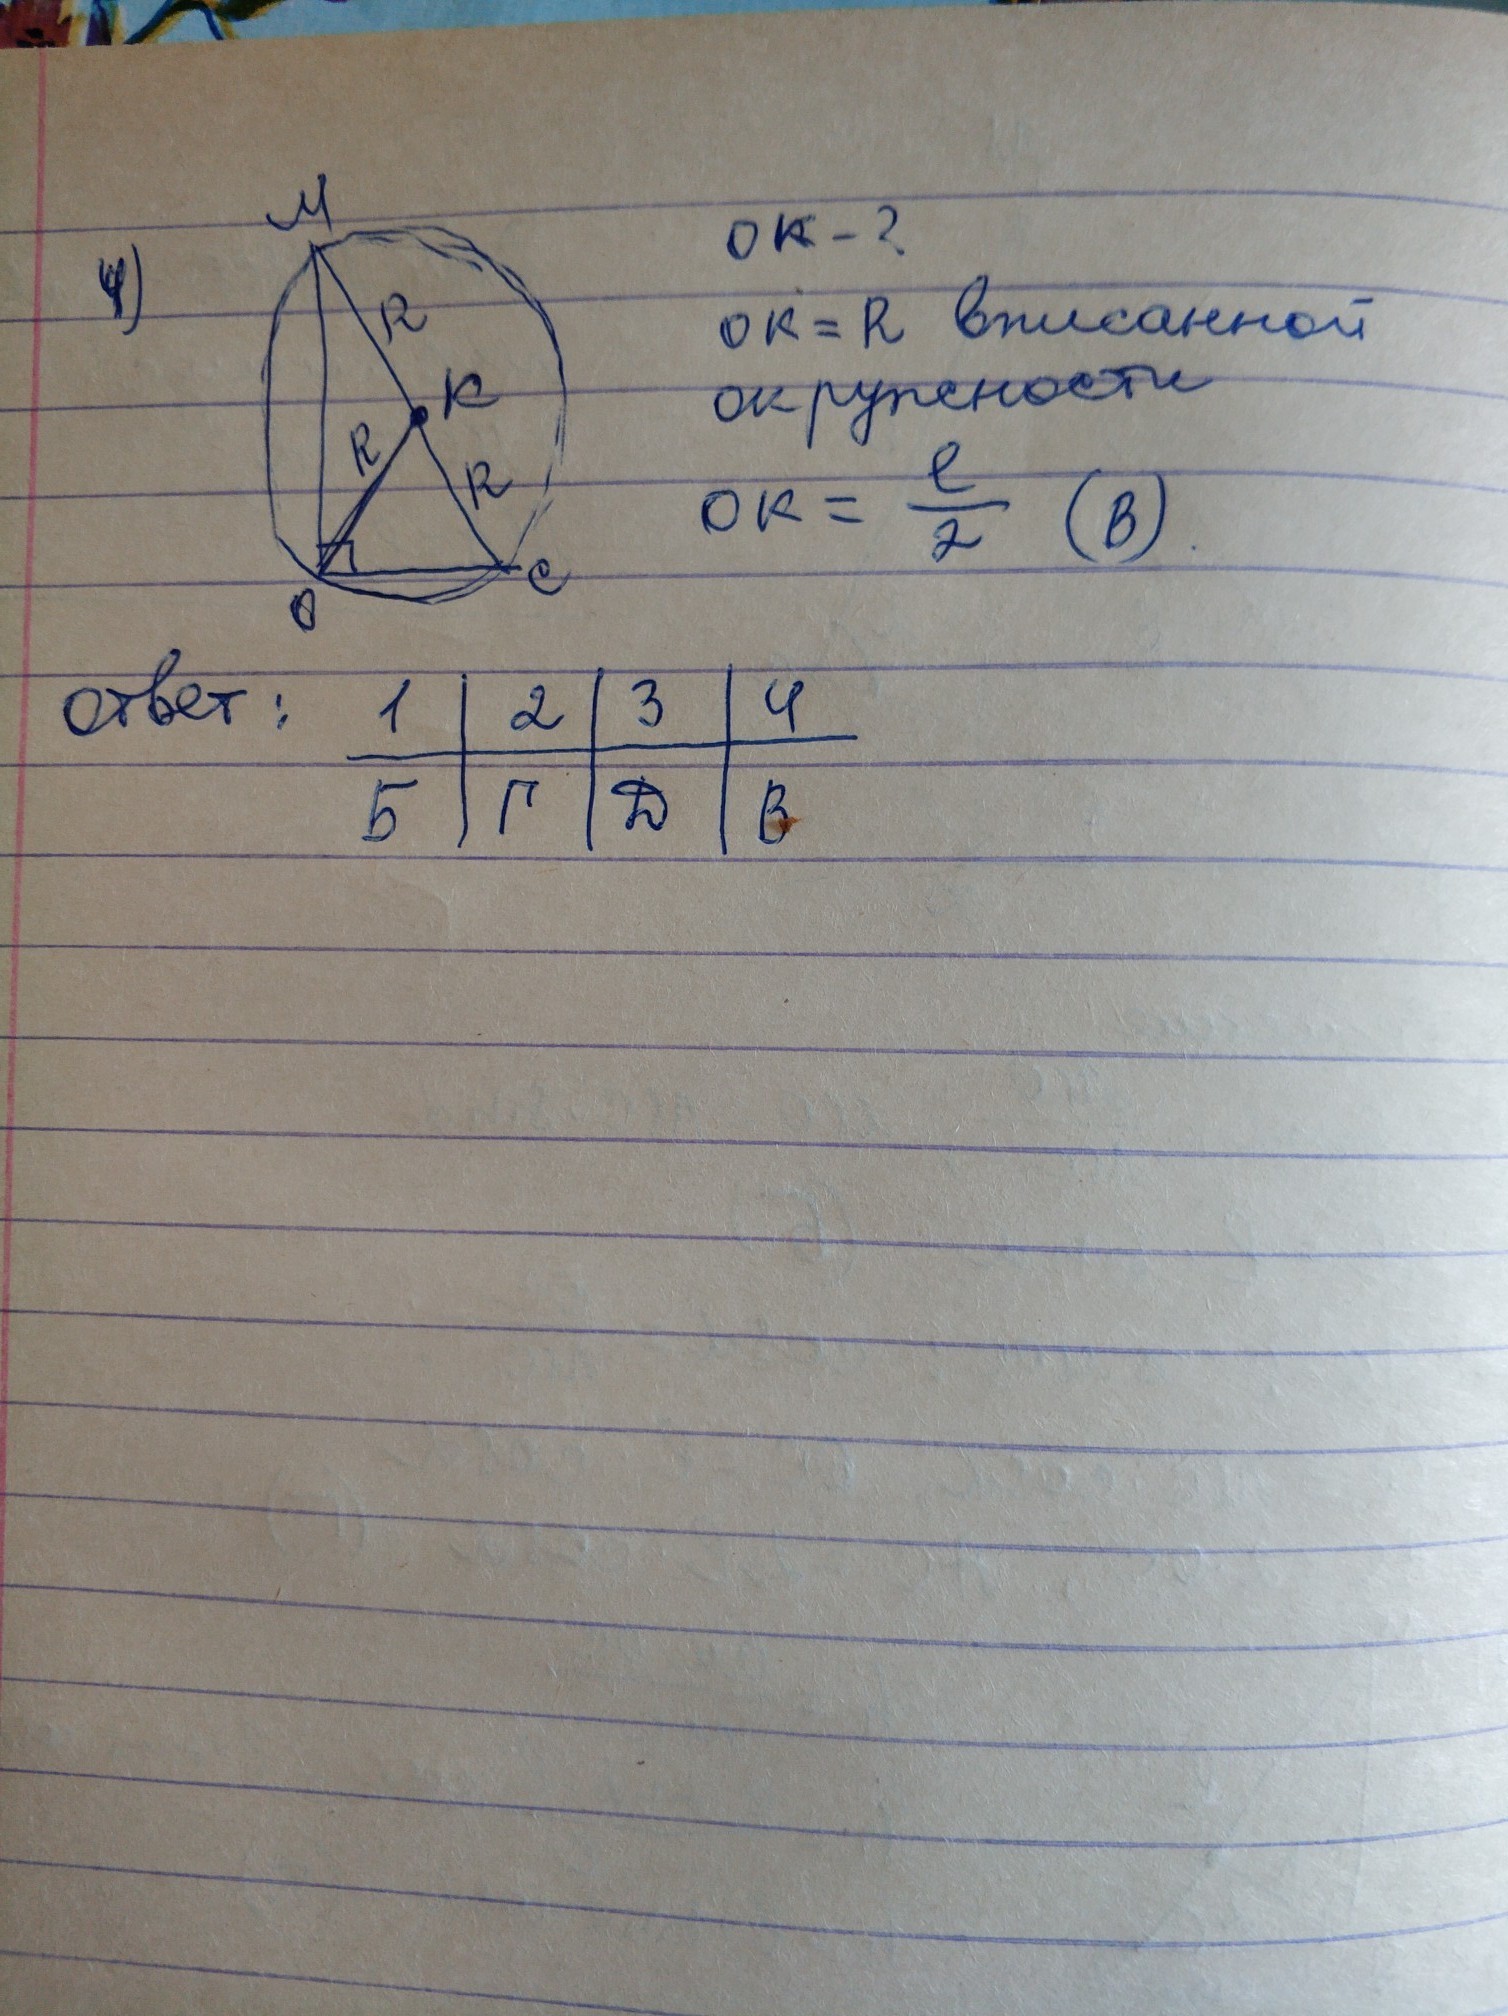 4)
M
R
K
R
R
O
C
OK - ?
OK = R вписанной
окружности
OK = e/2 (В).
Ответ: 1 | 2 | 3 | 4
Б | Г | Д | В